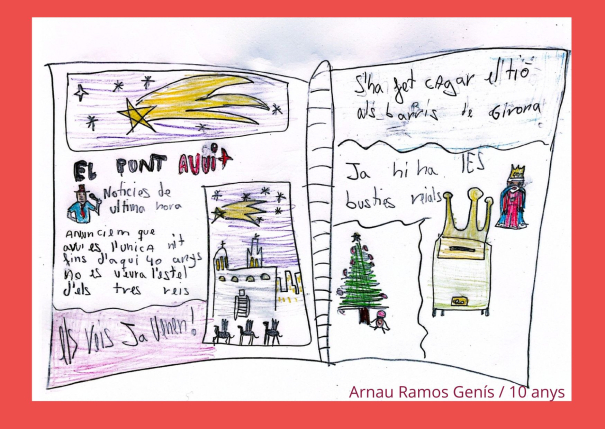 EL PONT AVUI+
Notícies de
última hora
Anunciem que
avui es l'unica nit
fins d'aquí 40 anys
no es veura l'estel
d'els tres reis
Els reis Ja venen!
S'ha fet cagar el tió
als barris de Girona
Ja hi ha les
busties reials
Arnau Ramos Genís / 10 anys